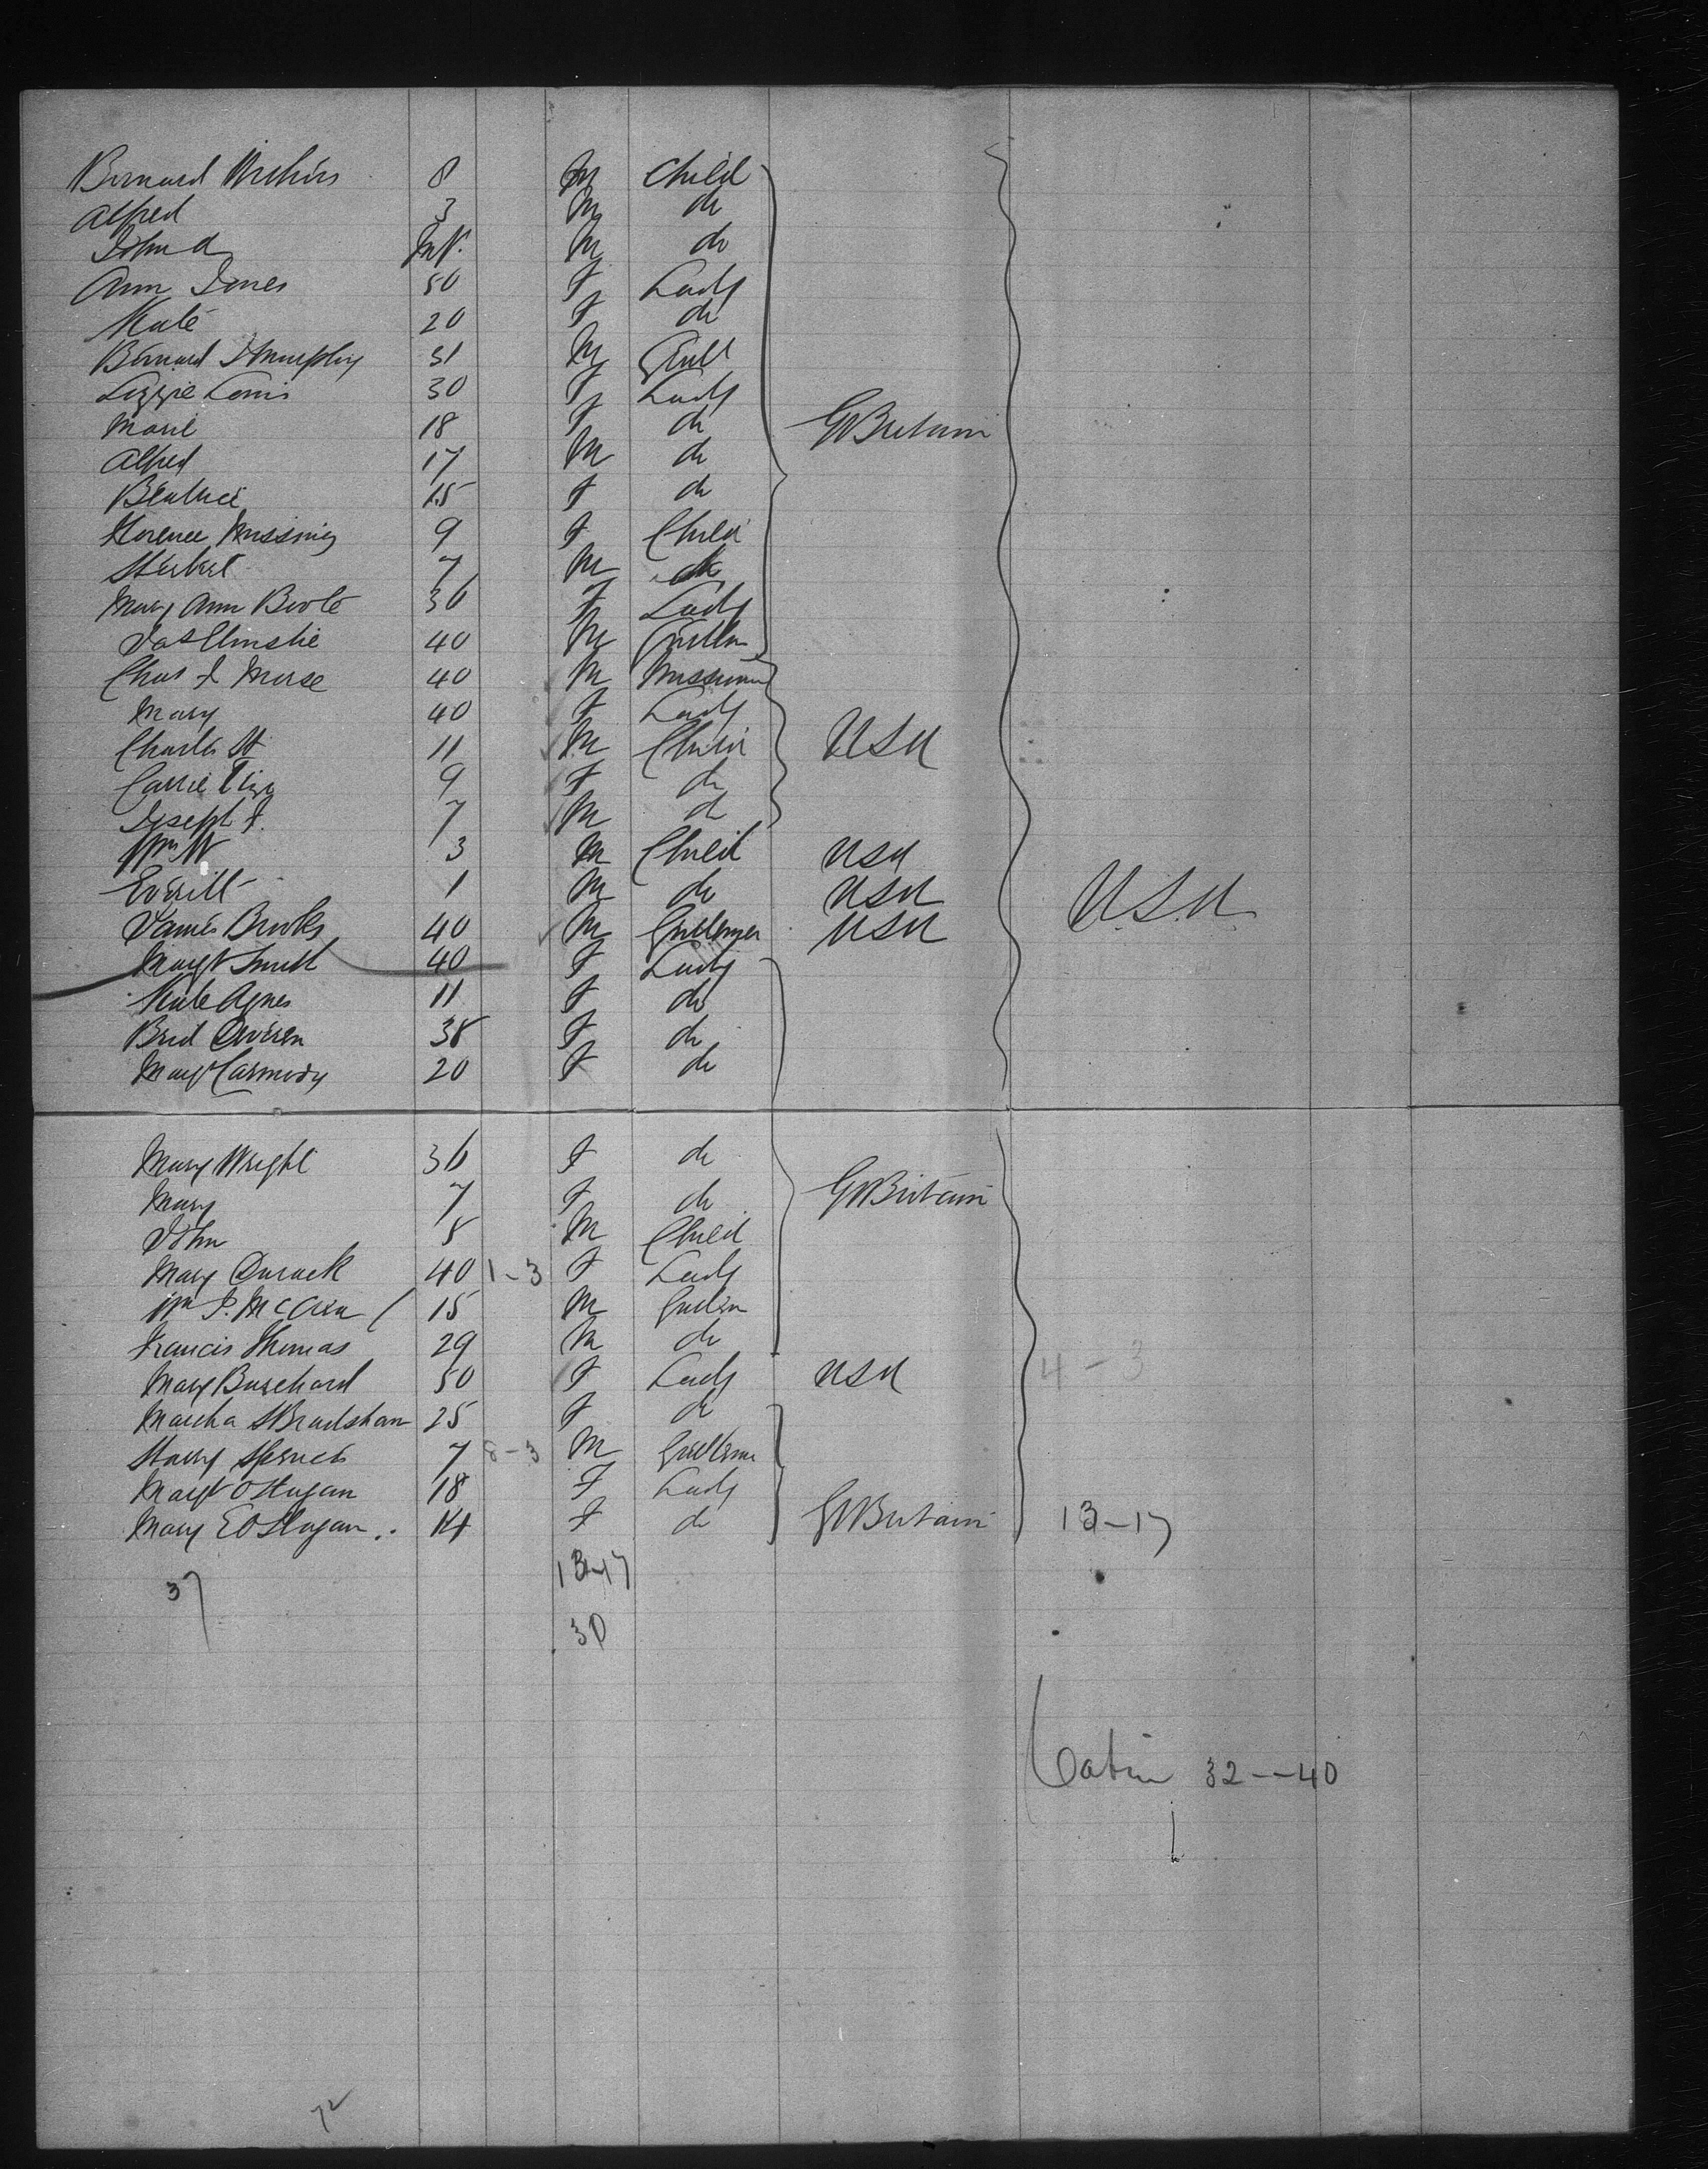 Bernard 8 M Child
Alfred 3 M do
John A Inf. M do
Ann Jones 50 F Lady
Kate 20 F do
Bernard J Murphy 31 M Gntl
Lizzie 30 F Lady
18 F do
Alfred 17 M do
Beatrice 15 F do
Florence 9 F Child
Herbert 7 M do
Mary Ann Boote 36 F Lady
Jas 40 M Gntlm
G Britain
Chas F Morse 40 M
Mary 40 F Lady
Charles H 11 M Child USA
Carrie Eliz 9 F do
Joseph F. 7 M d
Wm W 3 M Child USA
Everitt 1 M do USA USA
James Brooks 40 M USA
Margt Smith 40 F Lady
Kate Agnes 11 F do
Brid 38 F do
Margt Carmody 20 F do
Mary Wright 36 F do
Mary 7 F do G Britain
John 5 M Child
Mary Cusack 40 1-3 F Lady
Wm J. 15 M
Francis Thomas 29 M do
Mary Burchard 50 F Lady USA 4-3
Martha S Bradshaw 25 F do
Harry Spencer 7 8-3 M
Margt O Hagan 18 F Lady
Mary E O Hagan 14 F do G Britain 13-17
37 13-17
30
Cabin 32--40
72